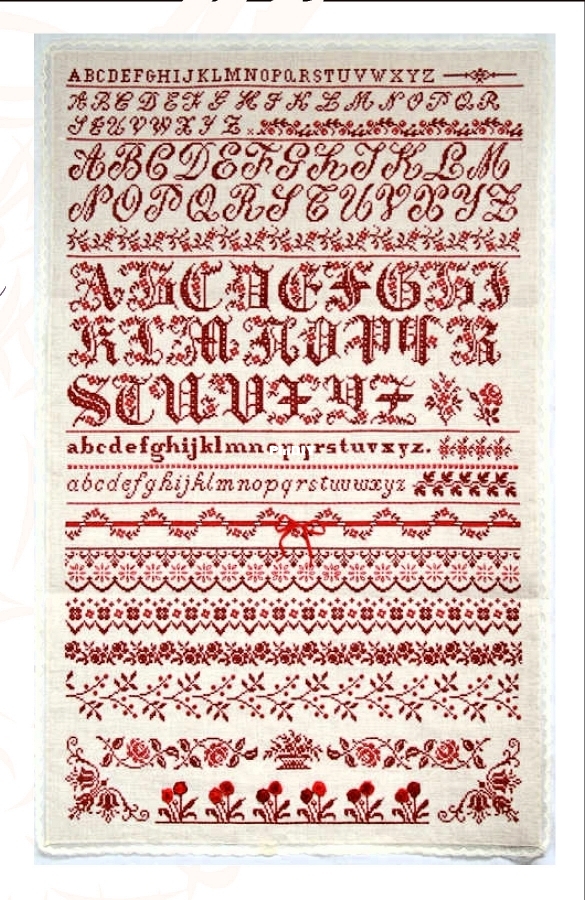 ABCDEFGHIJKLMNOPQRSTUVWXYZ
ABCDEFGHIJKLMNOPQR
STUVWXYZ
ABCDEFGHIJKLM
NOPQRSTUVXYZ
ABCDEFGHI
KLMNOPQR
STUVXYZ
abcdefghijklmnopqrstuvxyz.
abcdefghijklmnopqrstuvwxyz